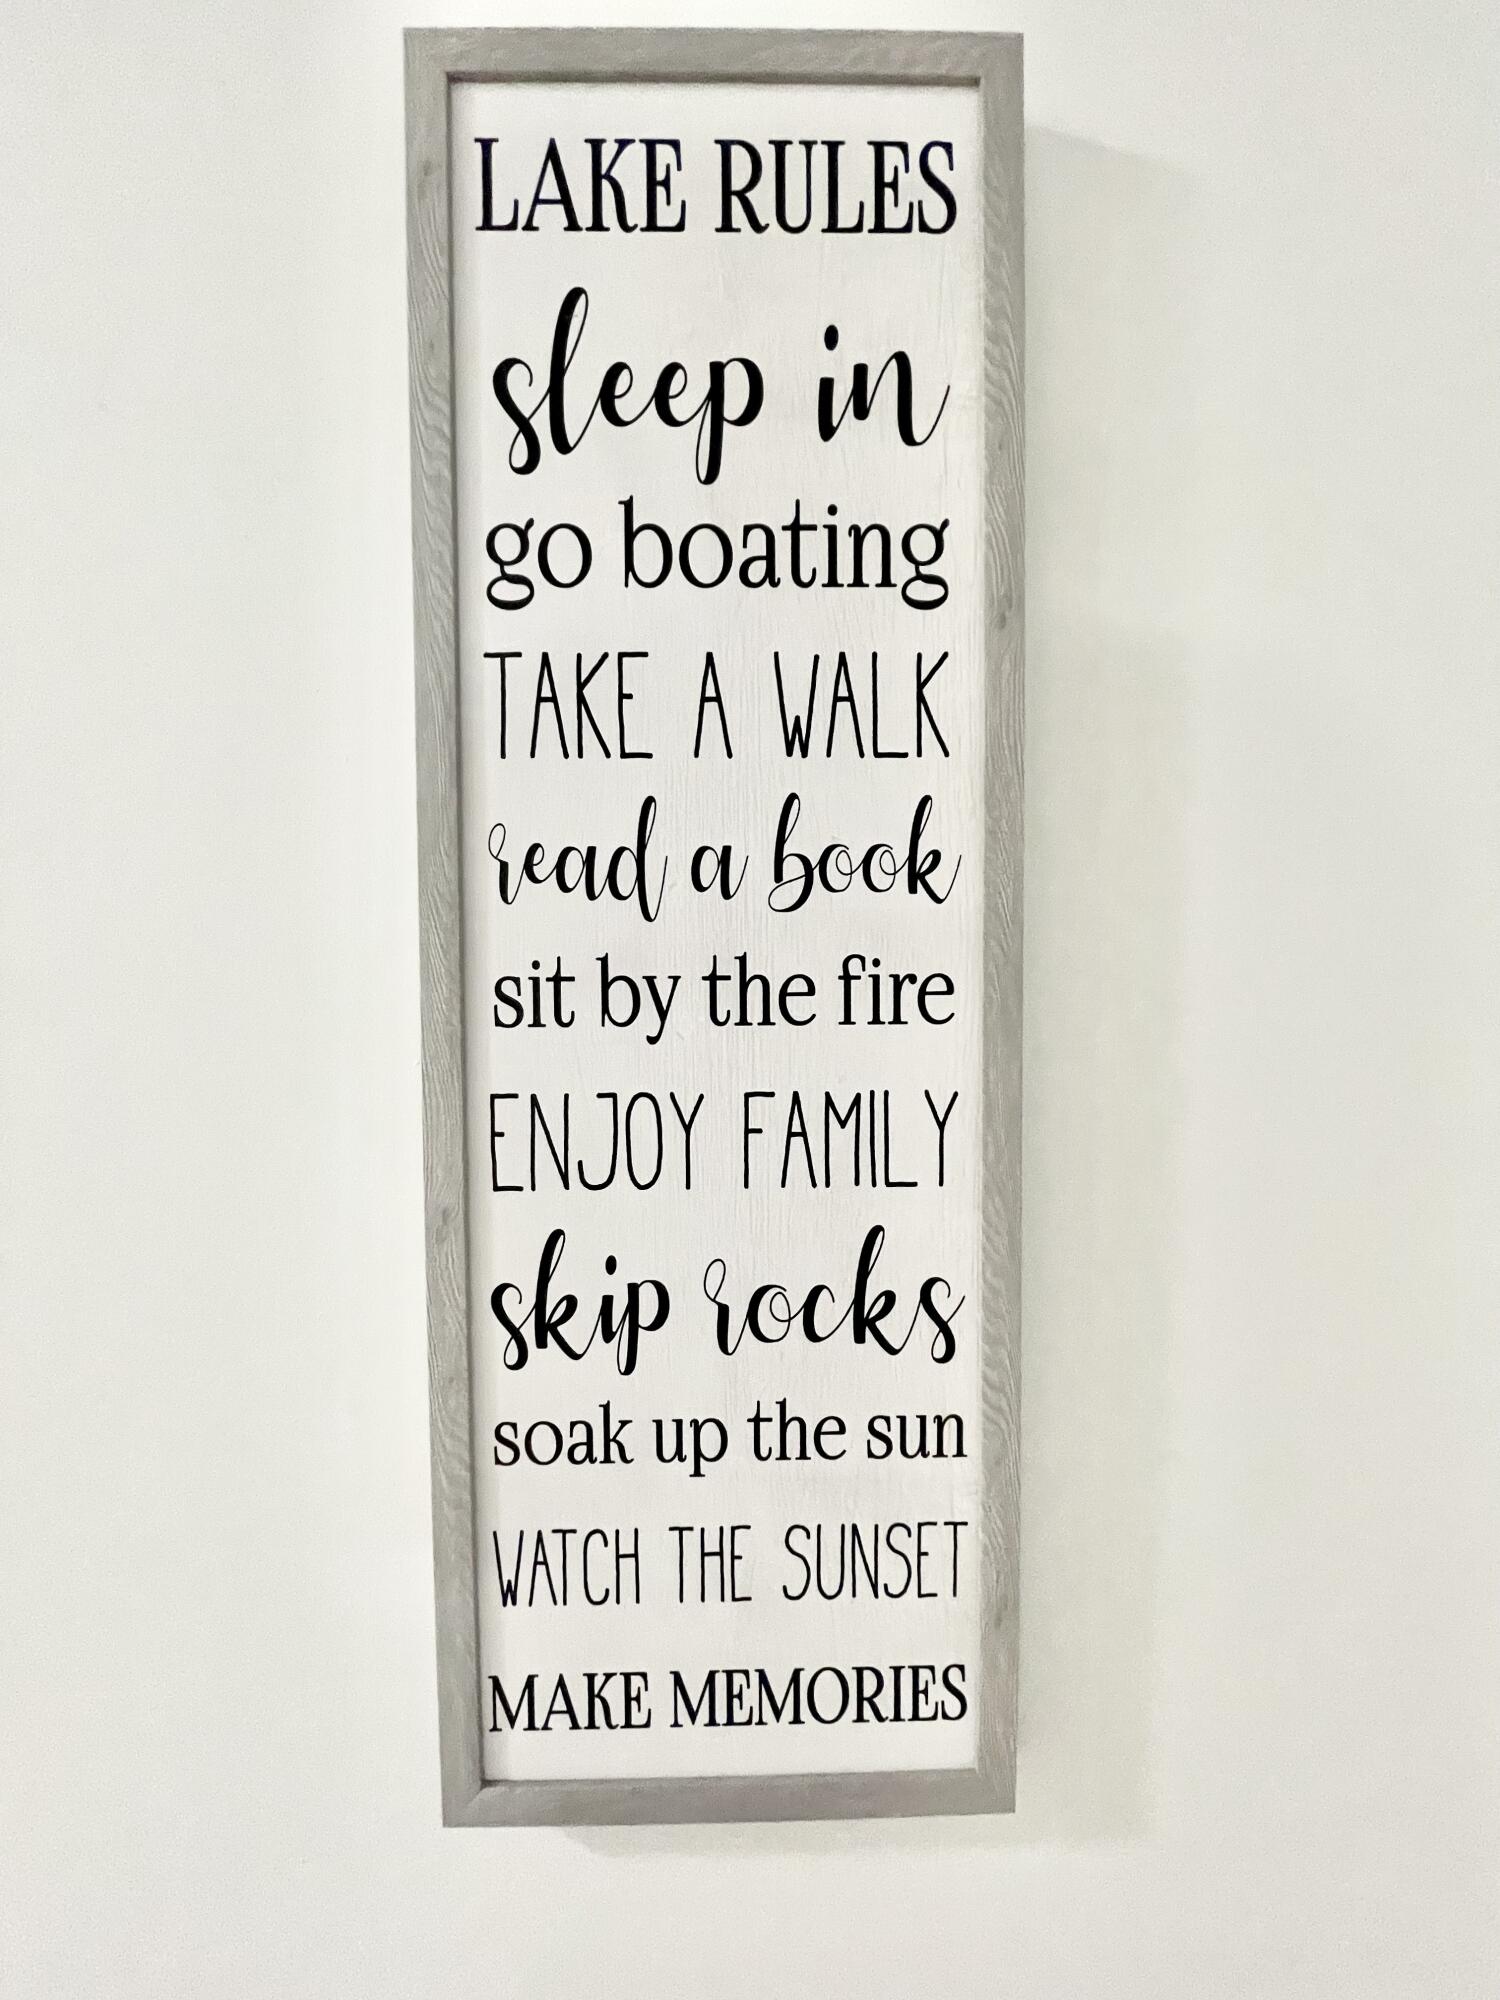 LAKE RULES
sleep in
go boating
TAKE A WALK
read a book
sit by the fire
ENJOY FAMILY
skip rocks
soak up the sun
WATCH THE SUNSET
MAKE MEMORIES